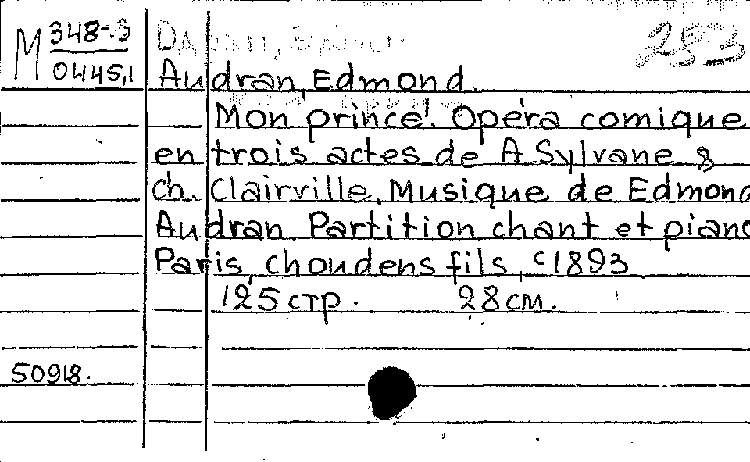 M 348-3
0445,1
253
Audran, Edmond.
Mon prince! Opéra comique
en trois actes de A Sylvane &
ch. Clairville. Musique de Edmond
Audran Partition chant et piano
Paris, choudens fils, c1893
125 стр. 28 см.
50918.